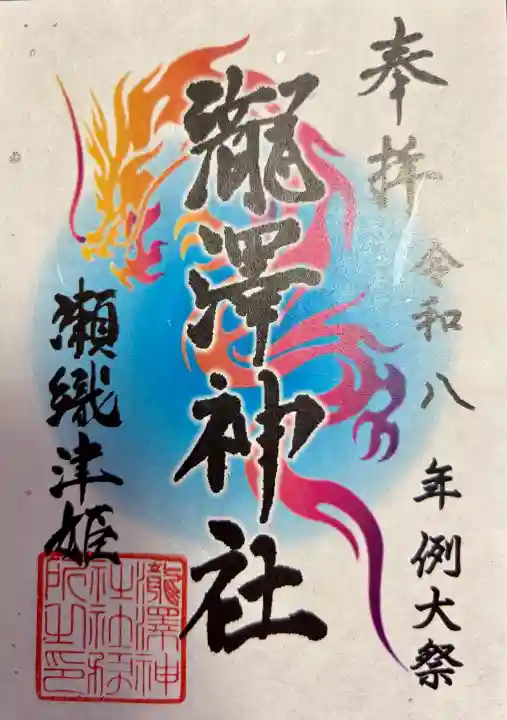 奉拝 令和八年例大祭
瀧澤神社
瀬織津姫
瀧澤神
社社務
所之印